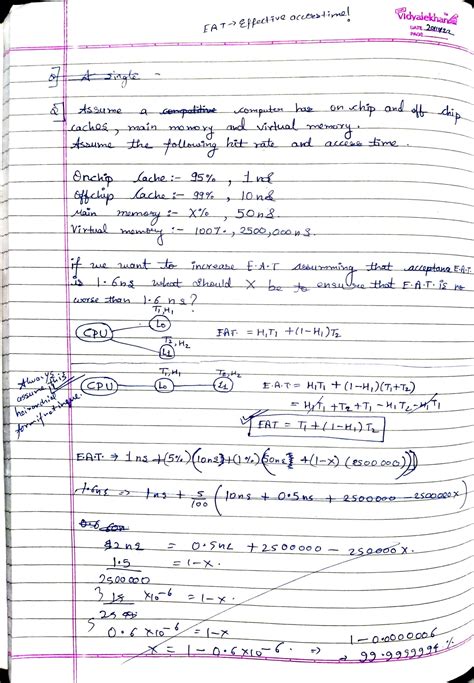 EAT → Effective access time!
Vidyalekhan
DATE
PAGE
Q] A single -
Q] Assume a competitive computer has on chip and off chip
caches, main memory and virtual memory.
Assume the following hit rate and access time.
Onchip Cache :- 95%, 1 ns
Offchip Cache :- 99%, 10 ns
Main memory :- X%, 50 ns
Virtual memory :- 100%, 2500,000 ns.
if we want to increase E.A.T assuming that acceptance E.A.T
is 1.6ns what should X be to ensure that E.A.T is no
worse than 1.6 ns?
T1,H1
CPU L0
T2,H2
L1
EAT = H1T1 + (1-H1)T2
Always
assume this
form if not given
T1,H1 T2,H2
CPU L0 L1
E.A.T = H1T1 + (1-H1)(T1+T2)
= H1T1 + T2 + T1 - H1T2 - H1T1
EAT = T1 + (1-H1)T2
EAT → 1ns + (5%)(10ns + (1%)(50ns + (1-x)(2500000)))
1.6ns => 1ns + 5/100 (10ns + 0.5ns + 2500000 - 2500000x)
12ns = 0.5ns + 2500000 - 250000x.
1.5 / 2500000 = 1-x.
3 15 / 25 x10^-6 = 1-x.
5
0.6 x10^-6 = 1-x
x = 1 - 0.6x10^-6. => 1-0.0000006
=> 99.9999994 %